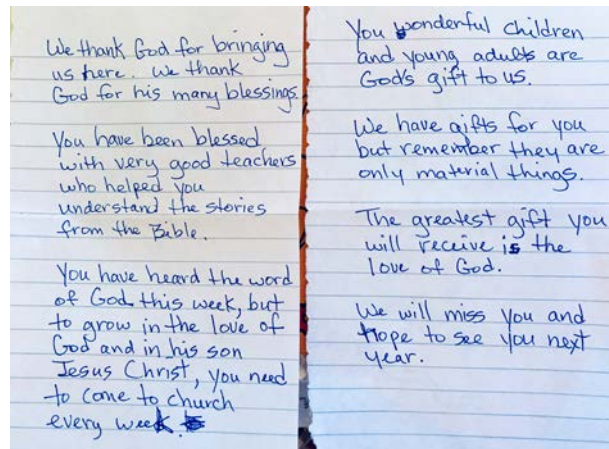 We thank God for bringing
us here. We thank
God for his many blessings.
You have been blessed
with very good teachers
who helped you
understand the stories
from the Bible.
You have heard the word
of God this week, but
to grow in the love of
God and in his son
Jesus Christ, you need
to come to church
every week.
You wonderful children
and young adults are
God's gift to us.
We have gifts for you
but remember they are
only material things.
The greatest gift you
will receive is the
love of God.
We will miss you and
hope to see you next
year.